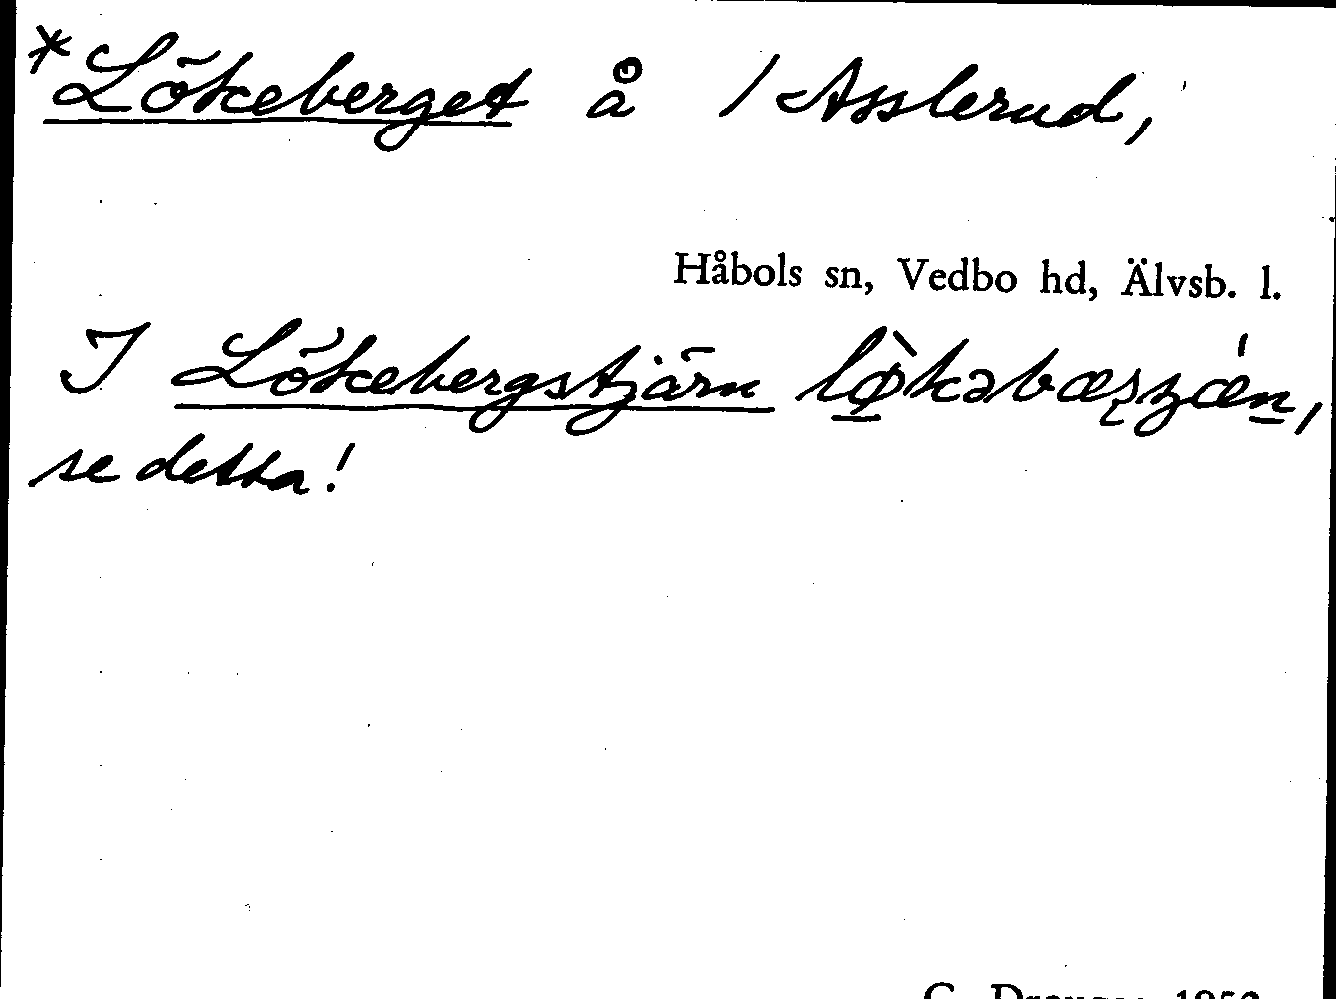 *Lökeberget å / Asslerud,
Håbols sn, Vedbo hd, Älvsb. l.
I Lökebergstjärn
se detta!